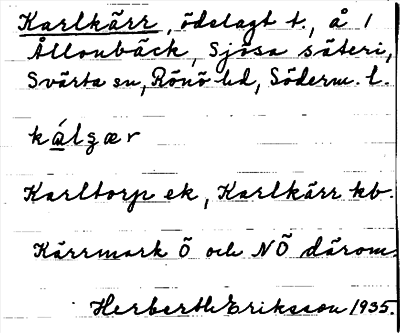 Karlkärr, ödelagt t., å /
Ållonbäck, Sjösa säteri,
Svärta sn, Rönö hd, Söderm. l.
kálgær
Karltorp ek, Karlkärr kb.
Kärrmark Ö och NÖ därom.
Herberth Eriksson 1935.